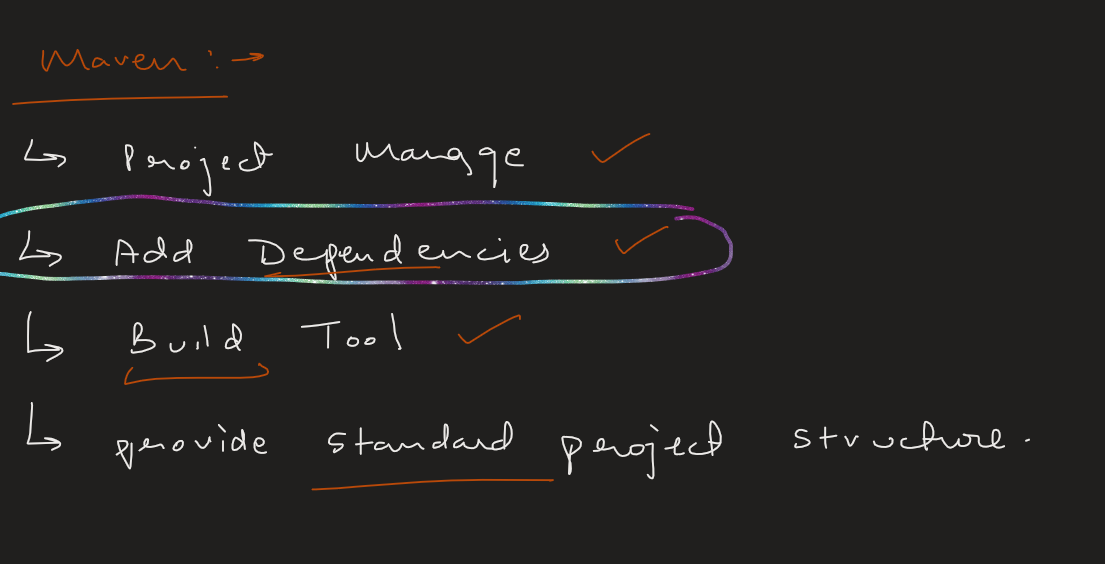 Maven :→
↳ Project Manage ✓
↳ Add Dependencies ✓
↳ Build Tool ✓
↳ provide standard project structure.